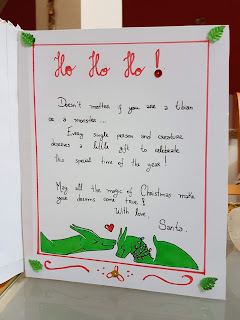 Ho Ho Ho!
Doesn't matter if you are a tibian
or a monster...
Every single person and creature
deserves a little gift to celebrate
this special time of the year!
May all the magic of Christmas make
your dreams come true!
With love,
Santa.